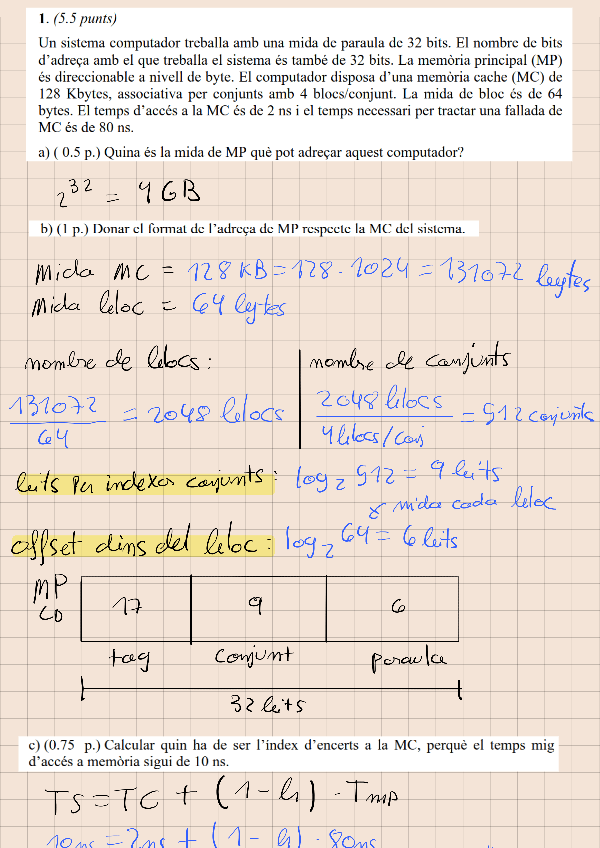 1. (5.5 punts)
Un sistema computador treballa amb una mida de paraula de 32 bits. El nombre de bits
d'adreça amb el que treballa el sistema és també de 32 bits. La memòria principal (MP)
és direccionable a nivell de byte. El computador disposa d'una memòria cache (MC) de
128 Kbytes, associativa per conjunts amb 4 blocs/conjunt. La mida de bloc és de 64
bytes. El temps d'accés a la MC és de 2 ns i el temps necessari per tractar una fallada de
MC és de 80 ns.
a) ( 0.5 p.) Quina és la mida de MP què pot adreçar aquest computador?
2^32 = 4 GB
b) (1 p.) Donar el format de l'adreça de MP respecte la MC del sistema.
Mida MC = 128 KB = 128 · 1024 = 131072 bytes
Mida bloc = 64 bytes
nombre de blocs:
131072 / 64 = 2048 blocs
nombre de conjunts
2048 blocs / 4 blocs/conj = 512 conjunts
bits per indexar conjunts: log₂ 512 = 9 bits
mida cada bloc
offset dins del bloc: log₂ 64 = 6 bits
MP
17 9 6
tag conjunt paraula
32 bits
c) (0.75 p.) Calcular quin ha de ser l'índex d'encerts a la MC, perquè el temps mig
d'accés a memòria sigui de 10 ns.
TS = TC + (1-h) · Tmp
10ns = 2ns + (1-h) · 80ns